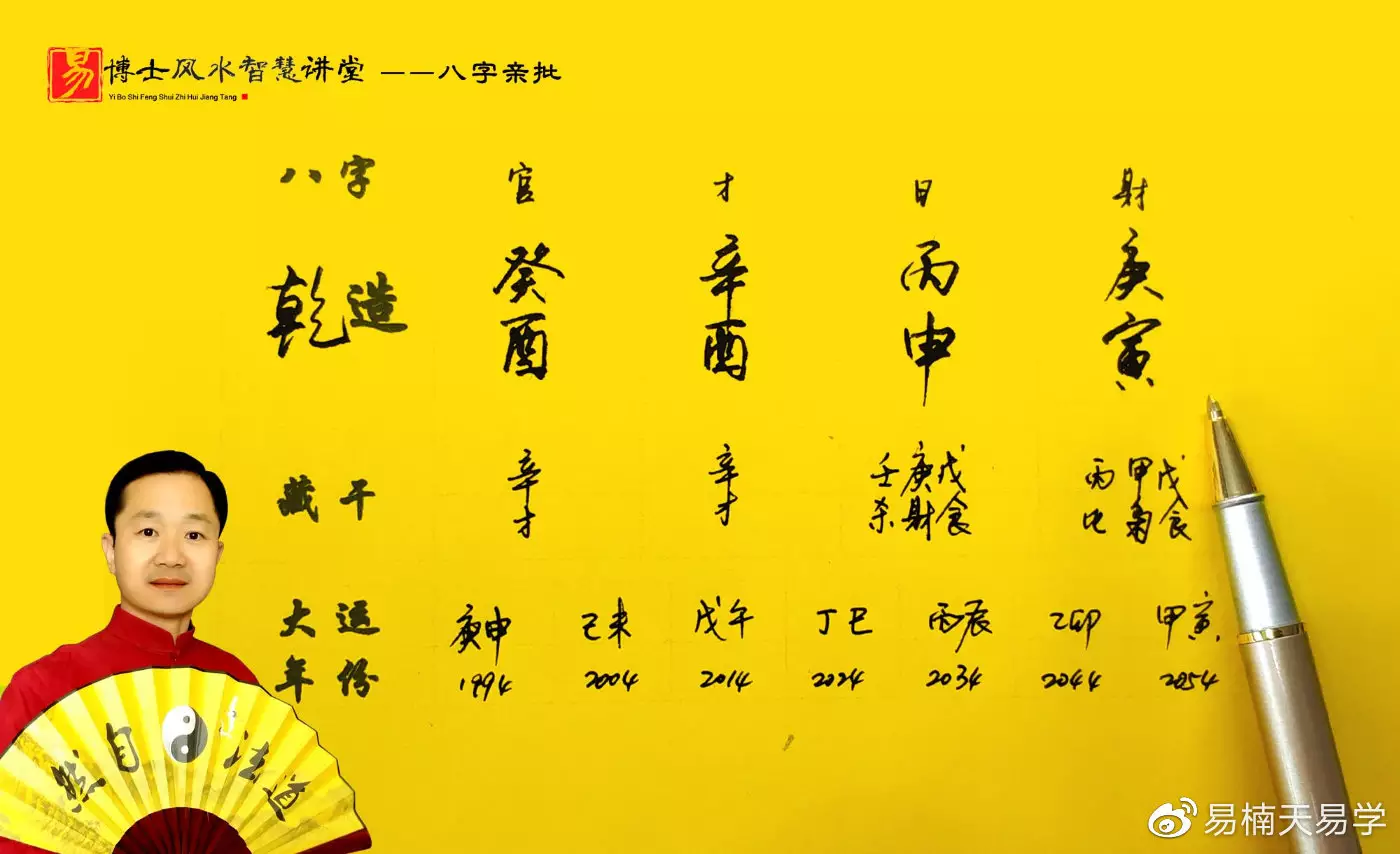 易 博士风水智慧讲堂 ——八字亲批
Yi Bo Shi Feng Shui Zhi Hui Jiang Tang
八字 官 才 日 财
乾造 癸 辛 丙 庚
酉 酉 申 寅
藏干 辛 辛 壬庚戊 丙甲戊
才 才 杀财食 比 食
大运 庚申 己未 戊午 丁巳 丙辰 乙卯 甲寅
年份 1994 2004 2014 2024 2034 2044 2054
然自 法道
易楠天易学